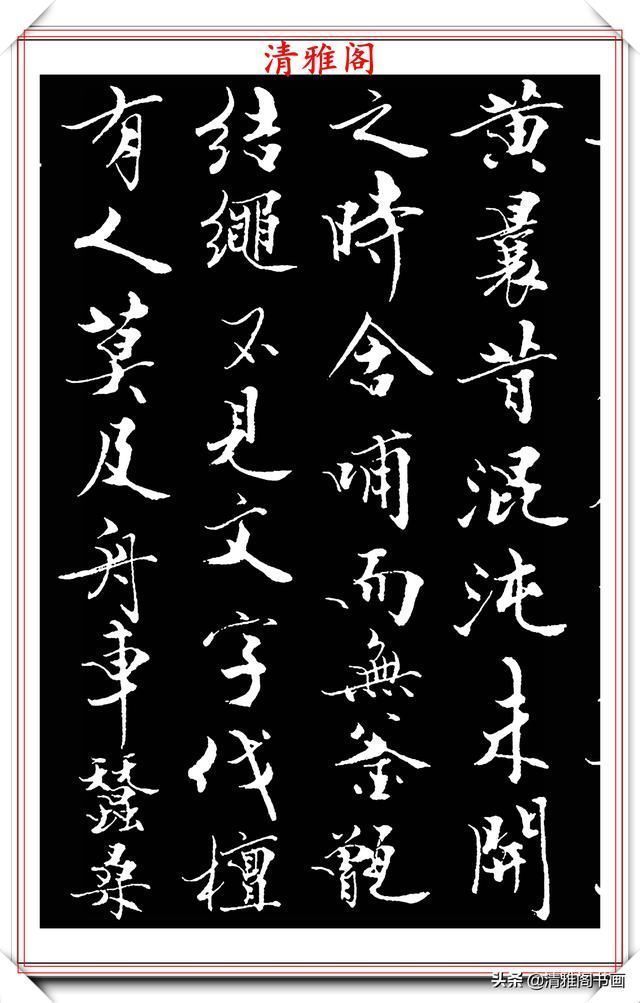 清雅阁
黄曩昔混沌未開
之時舍哺而無釜甑
結繩不見文字伐檀
有人莫及舟車蠶桑
头条@清雅阁书画